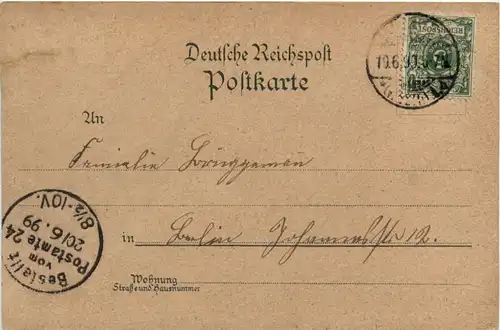 Deutsche Reichspost
Postkarte
An
Familie Brüggemann
in Berlin Johannesstr 12.
Wohnung
Straße und Hausnummer
Bestellt
vom
Postamte 24
20/6.99
8½-10V.
REICHSPOST
19.6.99